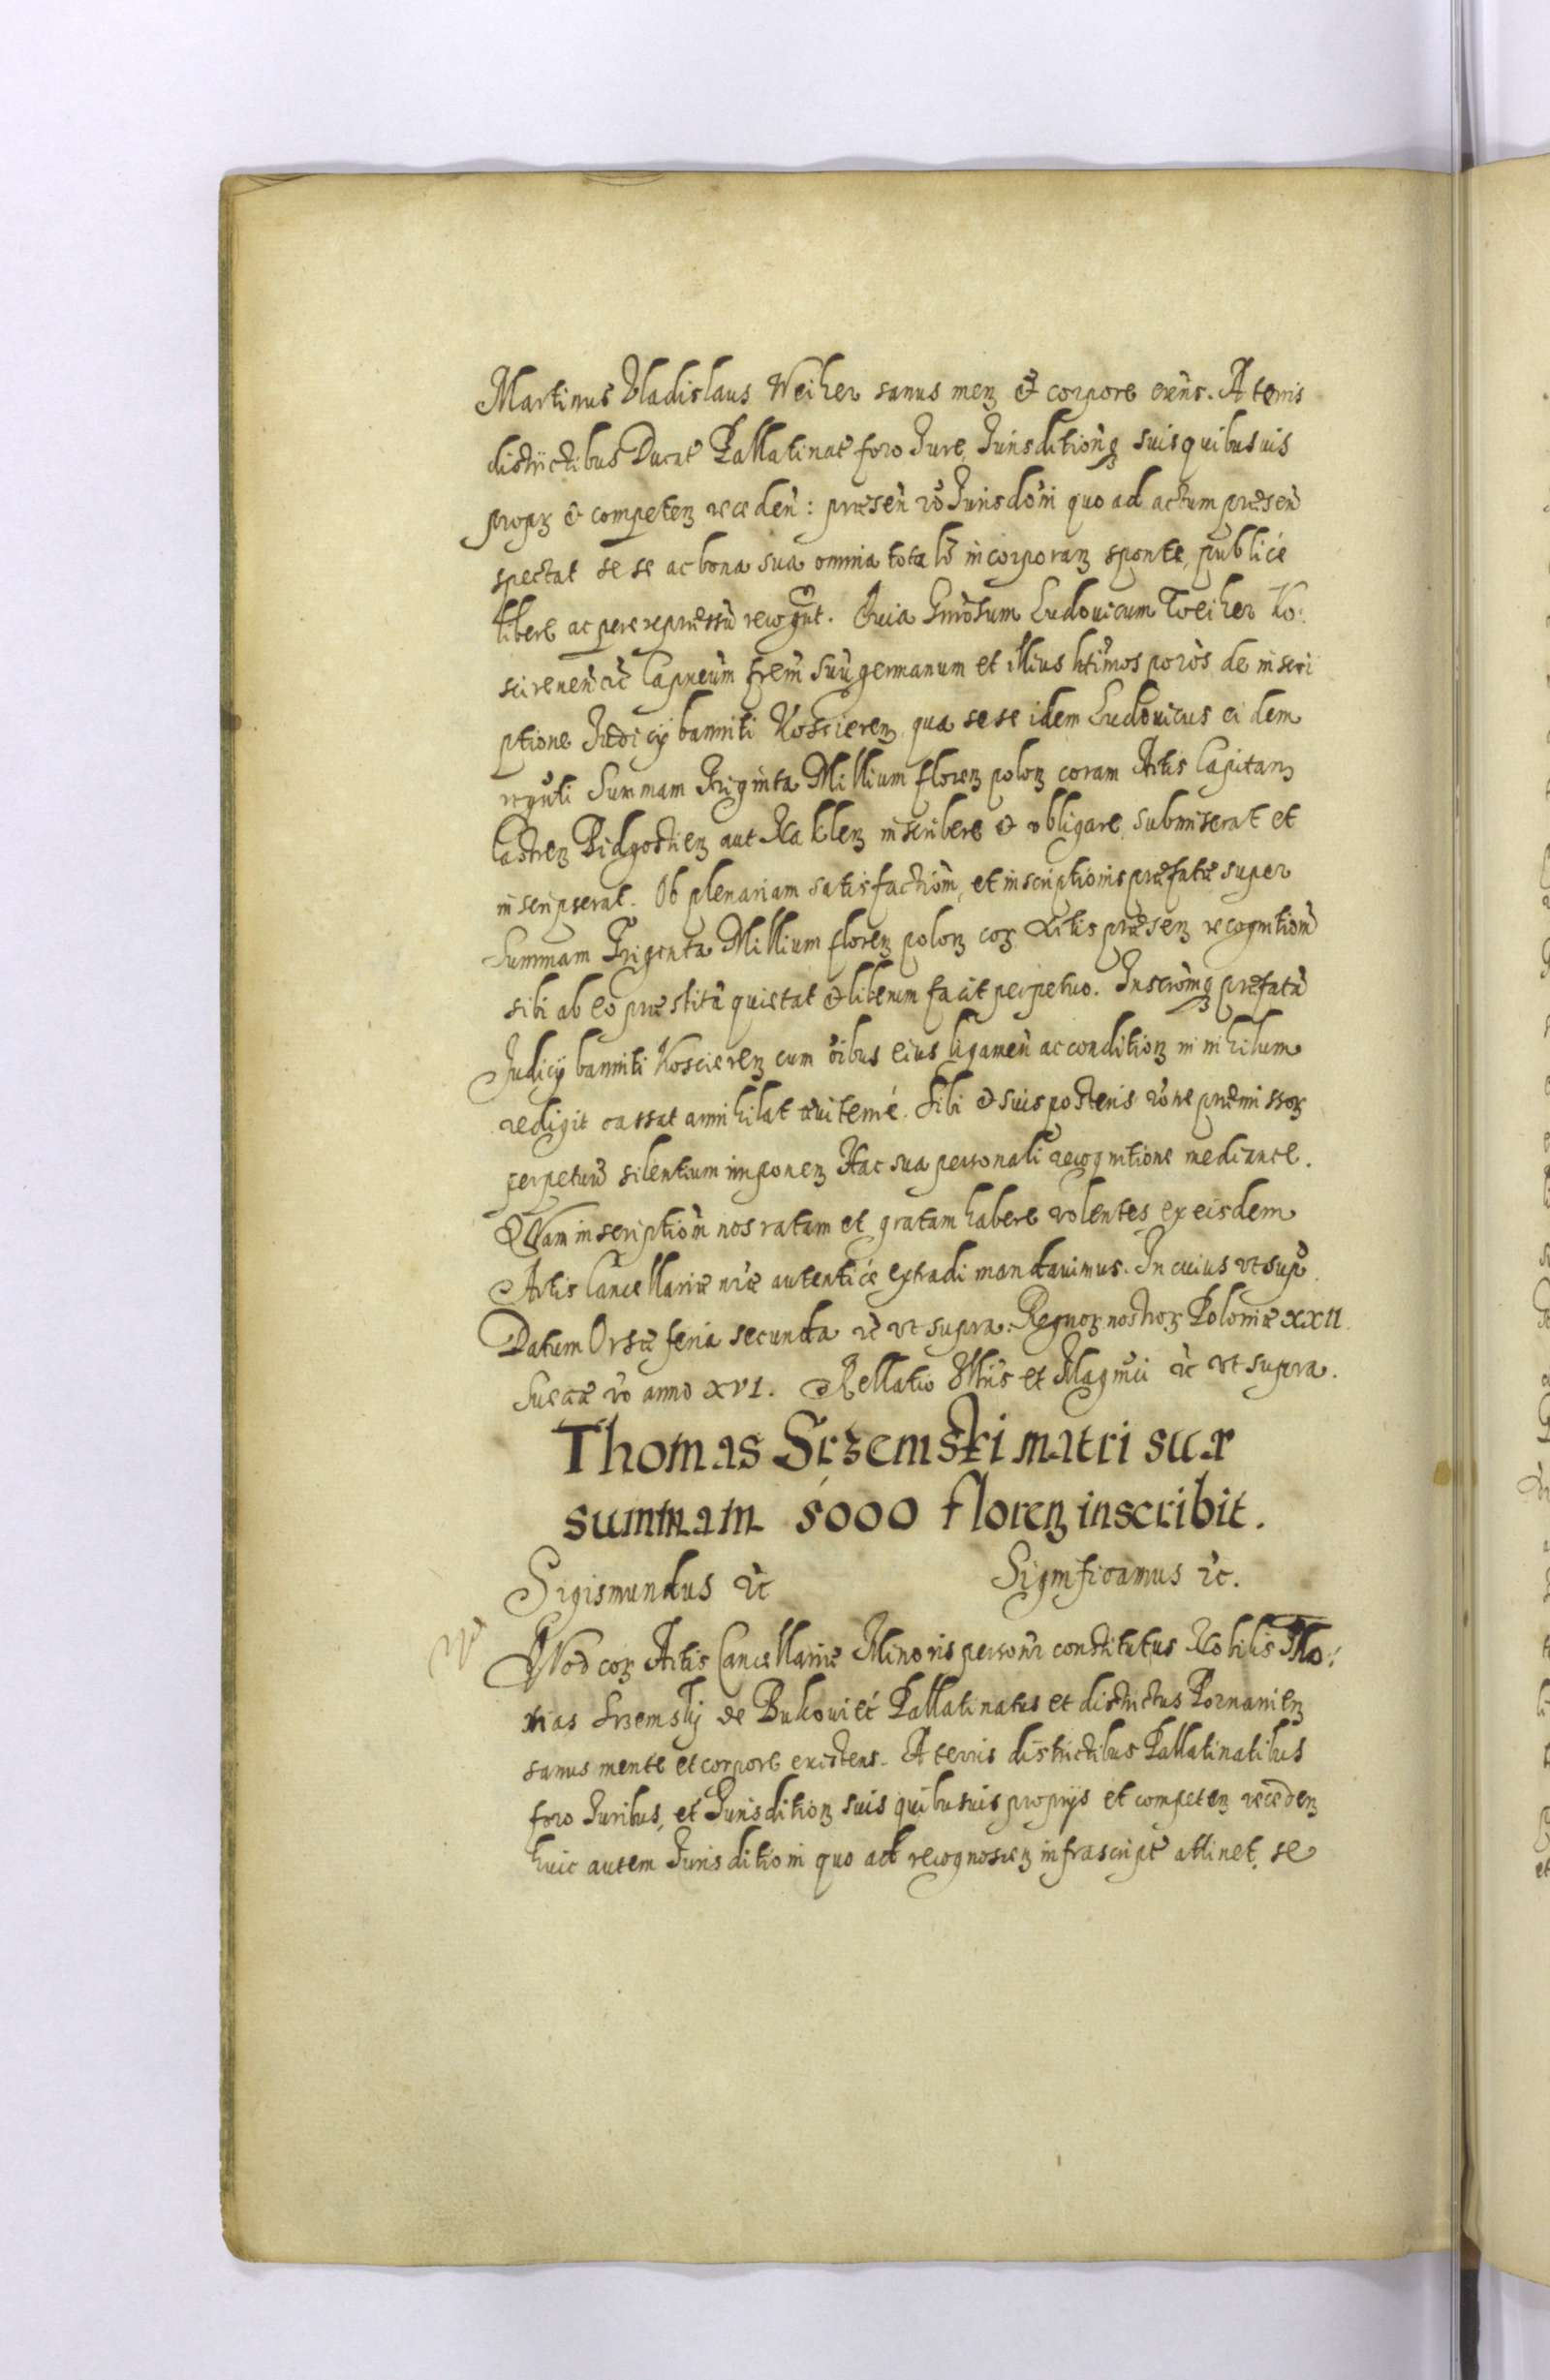 Martinus Vladislaus Weiher sanus menꝫ et corpore exñs. A terris
districtibus Ducat Pallatinat foro Jure, Jurisditionqꝫ suis quibusuis
propꝫ et competenꝫ receden̄: præsen̄ vo Jurisdoni quo ad actum præsen̄
spectat se se ac bona sua omnia totalr̄ incorporanꝫ sponte, publice
libere ac per expressū recognt. Quia Gnrosum Ludouicum Weiher Ko:
scirenen̄ ꝛc Capneum frem suū germanum et illius ltimos poros de inscri
ptione Judicij banniti Koscierenꝫ qua sese idem Ludouicus eidem
rcgnti Summam Triginta Millium florenꝫ polonꝫ coram Actis Capitanꝫ
Castrenꝫ Bidgostienꝫ aut Naklenꝫ inscribere et obligare submiserat et
inscripserat. Ob plenariam satisfactiom, et inscriptionis præfatæ super
Summam Trigenta Millium florenꝫ polonꝫ corꝫ Actis præsenꝫ recognitiom
sibi ab eo præstitā quietat et liberum facit perpetuo. Inscromqꝫ præfatā
Judicij banniti Koscierenꝫ cum oibus eius ligamen̄ ac conditionꝫ in nihilum
redigit cassat annihilat æuiterne. Sibi et suis posteris rone præmissorꝫ
perpetuū silentium imponenꝫ Hac sua personali recognitione mediante.
QVam inscriptiom nos ratam et gratam habere volentes ex eisdem
Actis Cancellariæ nræ autentice extradi mandauimus. In cuius vt sup.
Datum Orsæ feria secunda ꝛc vt supra. Regnorꝫ nostrorꝫ Poloniæ XXII.
Sueciæ vo anno XVI. Rellatio Illris et Magnci ꝛc vt supra.
Thomas Srzemski matri suæ
summam 5000 florenꝫ inscribit.
Sigismundus ꝛc Significamus ꝛc.
QVod corꝫ Actis Cancellariæ Minoris personr constitutus Nobilis Tho:
mas Srzemskj de Bukouiec Pallatinatus et districtus Poznanienꝫ
sanus mente et corpore existens. A terris districtibus Pallatinatibus
foro Juribus, et Jurisditionꝫ suis quibusuis proprijs et competenꝫ recedenꝫ
huic autem Jurisditioni quo act recognoscenꝫ infrascript attinet, se